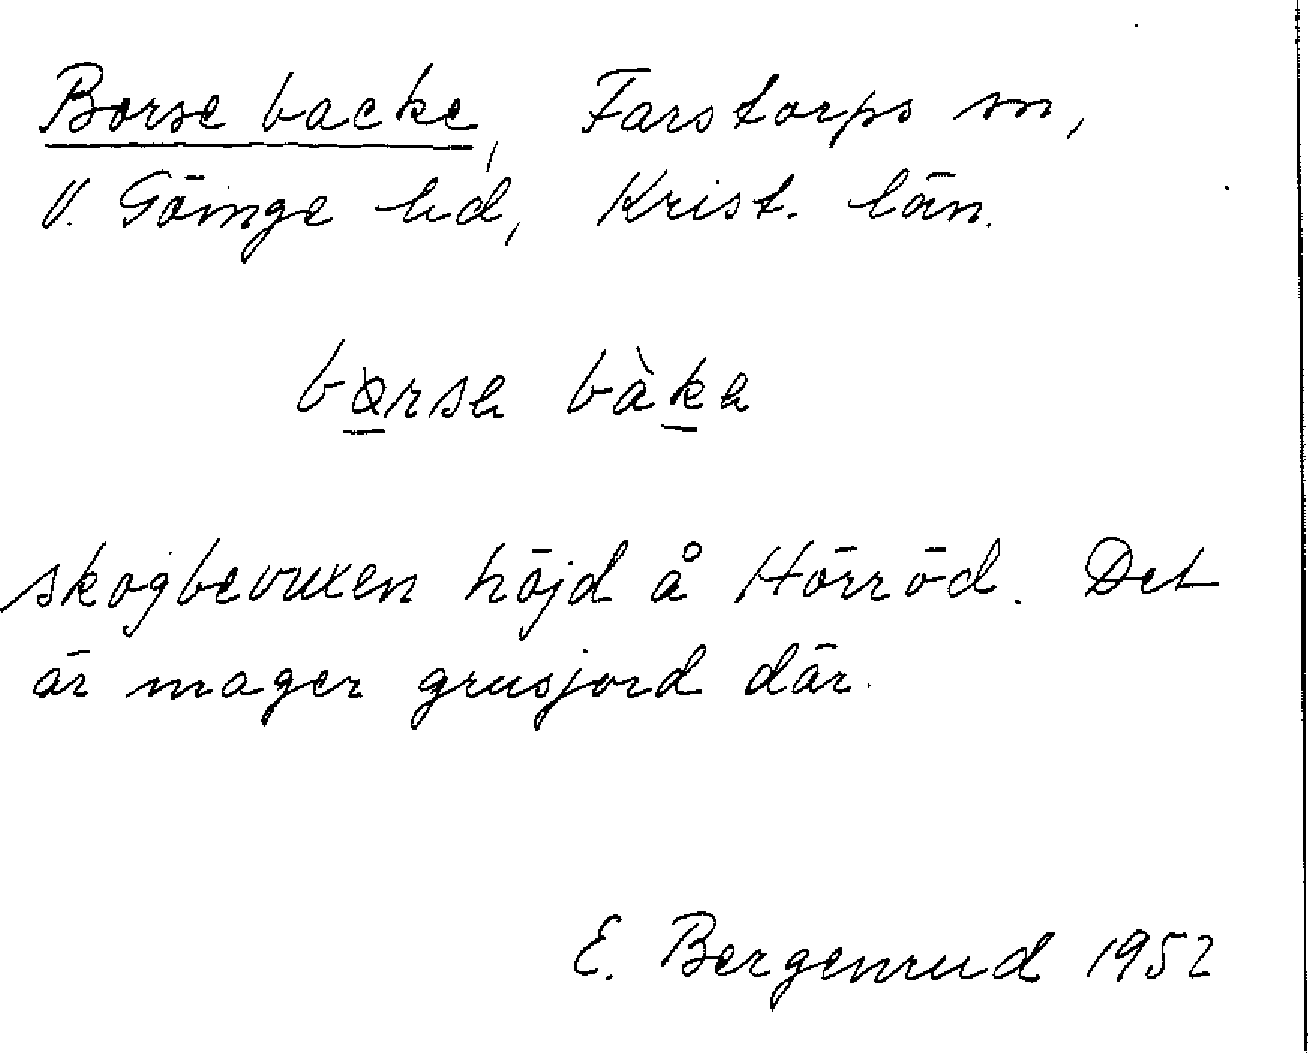 Borse backe, Farstorps sn,
V. Göinge hd, Krist. län.
bòrse bàke
skogbevuxen höjd å Hörröd. Det
är mager grusjord där.
E. Bergenrud 1952